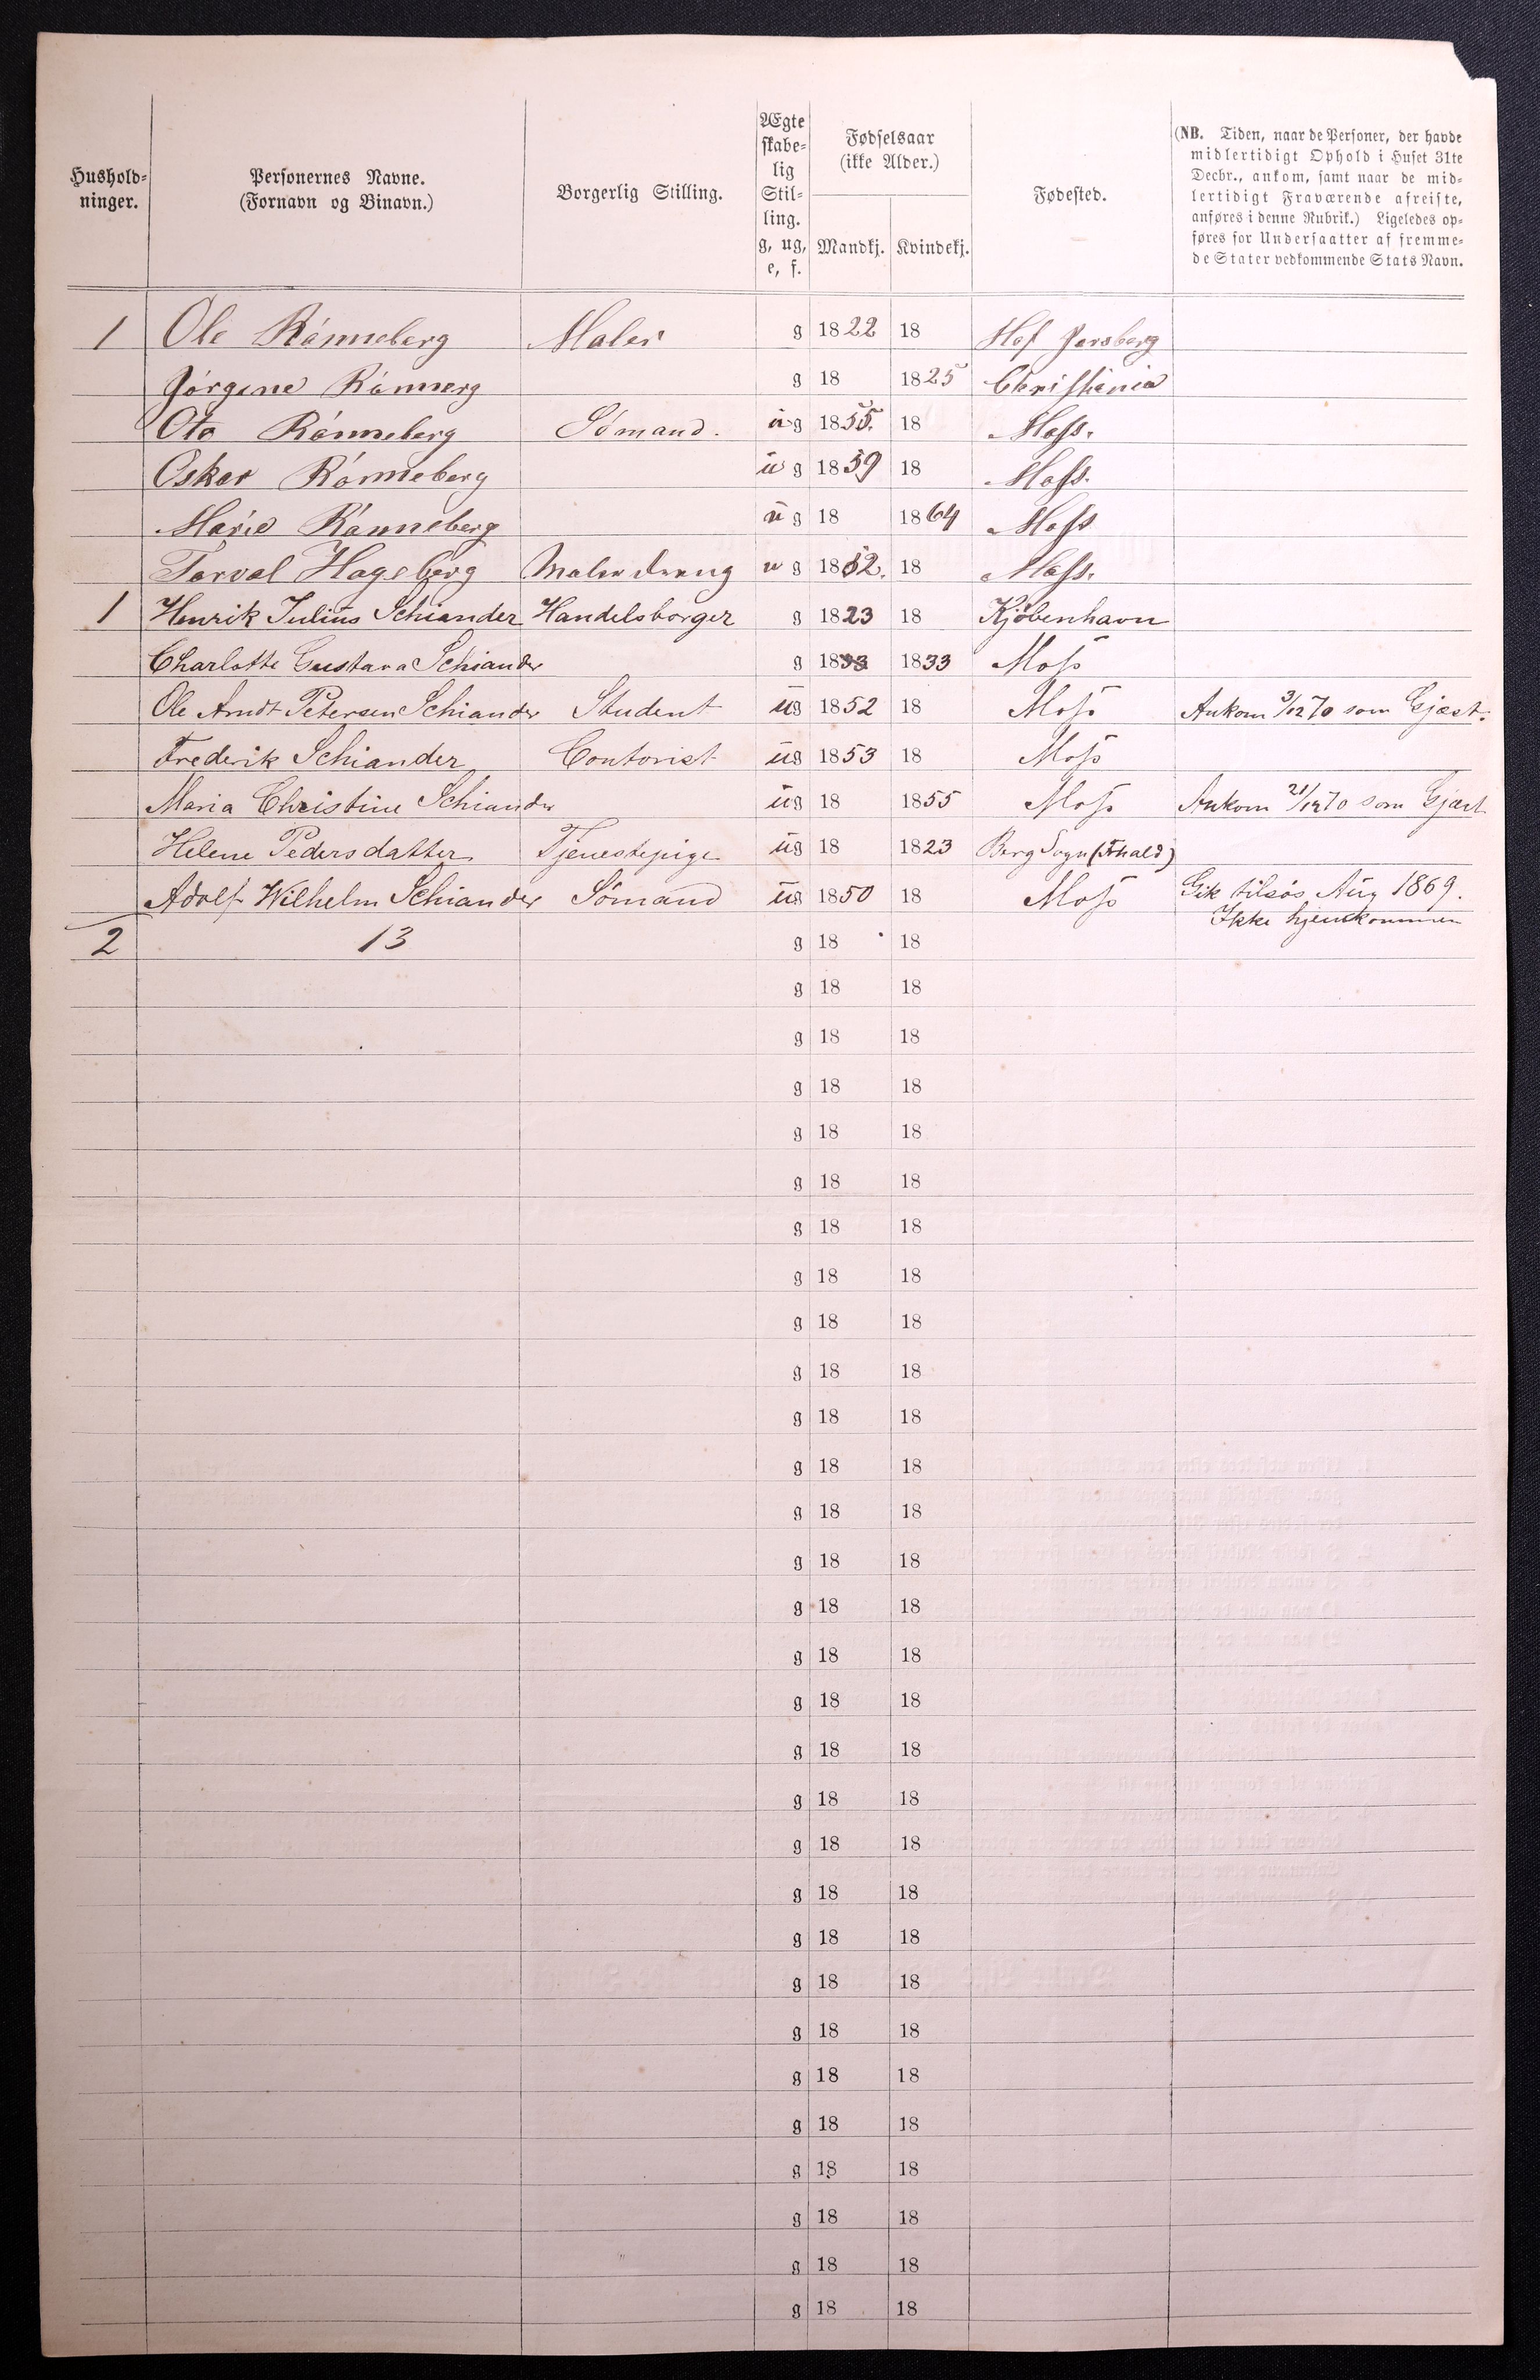 Hushold-
ninger.
Personernes Navne.
(Fornavn og Binavn.)
Borgerlig Stilling.
Ægte
skabe-
lig
Stil-
ling.
g, ug,
e, f.
Fødselsaar
(ikke Alder.)
Mandkj. Kvindekj.
Fødested.
(NB. Tiden, naar de Personer, der havde
midlertidigt Ophold i Huset 31te
Decbr., ankom, samt naar de mid-
lertidigt Fraværende afreiste,
anføres i denne Rubrik.) Ligeledes op-
føres for Undersaatter af fremme-
de Stater vedkommende Stats Navn.
1 Ole Rónneberg Maler g 1822 18 Hof Jarsberg
Jórgine Rónnerg g 18 1825 Christiania
Oto Rónneberg Sómand. ug 1855. 18 Moss.
Oskar Rónneberg ug 1859 18 Moss.
Marie Rónneberg ug 18 1864 Moss
Torval Hageberg Malerdreng ug 1852. 18 Moss.
1 Henrik Julius Schiander Handelsborger g 1823 18 Kjöbenhavn
Charlotte Gustava Schiander g 1833 1833 Moss
Ole Arndt Petersen Schiander Student ug 1852 18 Moss Ankom 3/12 70 som Gjæst.
Frederik Schiander Contorist ug 1853 18 Moss
Maria Christine Schiander ug 18 1855 Moss Ankom 21/12 70 som Gjæst
Helene Pedersdatter Tjenestepige ug 18 1823 Berg Sogn (Frhald)
Adolf Wilhelm Schiander Sömand ug 1850 18 Moss Gik tilsös Aug 1869.
Ikke hjemkommen
2 13 g 18 18
g 18 18
g 18 18
g 18 18
g 18 18
g 18 18
g 18 18
g 18 18
g 18 18
g 18 18
g 18 18
g 18 18
g 18 18
g 18 18
g 18 18
g 18 18
g 18 18
g 18 18
g 18 18
g 18 18
g 18 18
g 18 18
g 18 18
g 18 18
g 18 18
g 18 18
g 18 18
g 18 18
g 18 18
g 18 18